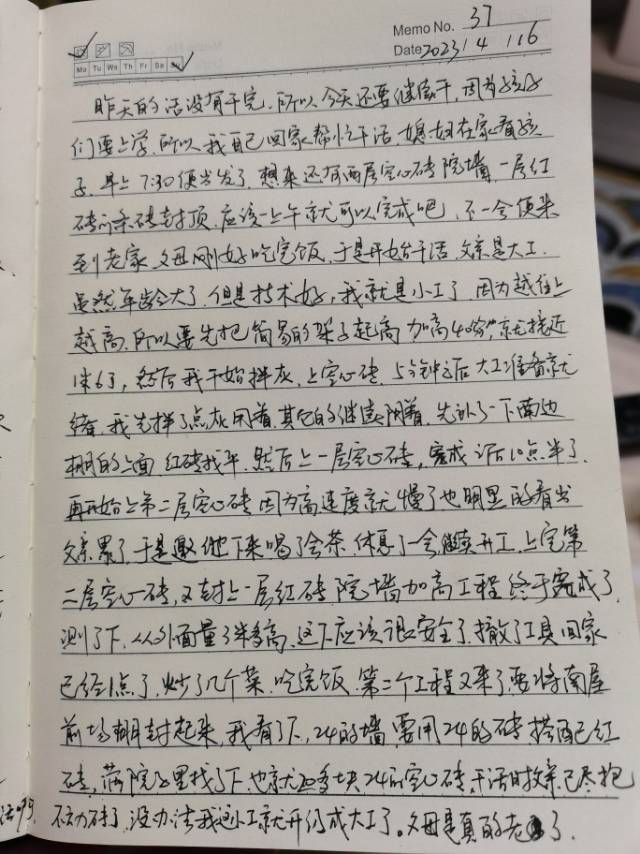 Memo No. 37
Mo Tu We Th Fr Sa Su
Date 2023 / 4 / 16
昨天的活没有干完，所以今天还要继续干，因为孩子
们要上学，所以我自己回家帮忙干活，媳妇在家看孩
子，早上7:30便出发了，想来还有两层空心砖院墙，一层红
砖和条砖封顶，应该一上午就可以完成吧，不一会便来
到老家，父母刚好吃完饭，于是开始干活，父亲是大工，
虽然年龄大了，但是技术好，我就是小工了，因为越往上
越高，所以要先把简易的架子起高加高40公分，就接近
1米6了，然后我开始拌灰，上空心砖，5分钟之后大工准备就
绪，我先拌了点灰用着，其它的继续阴着，先补了一下南边
棚的上面，红砖找平，然后上一层空心砖，完成了后10点半了，
再开始上第二层空心砖，因为高速度就慢了也明显的看出
父亲累了，于是邀他下来喝了会茶，休息了一会继续开工，上完第
二层空心砖，又封上一层红砖，院墙加高工程终于完成了，
测了下，从外面量了2米多高，这下应该很安全了，撤了工具回家
已经1点了，炒了几个菜，吃完饭，第二个工程又来了，要将南屋
前场棚封起来，我看了下，24的墙，要用24的砖，搭配红
砖，满院子里找了下，也就20多块24的空心砖，干活时父亲已尽抱
不动砖了，没办法我这小工就开始成大工了。父母是真的老了。